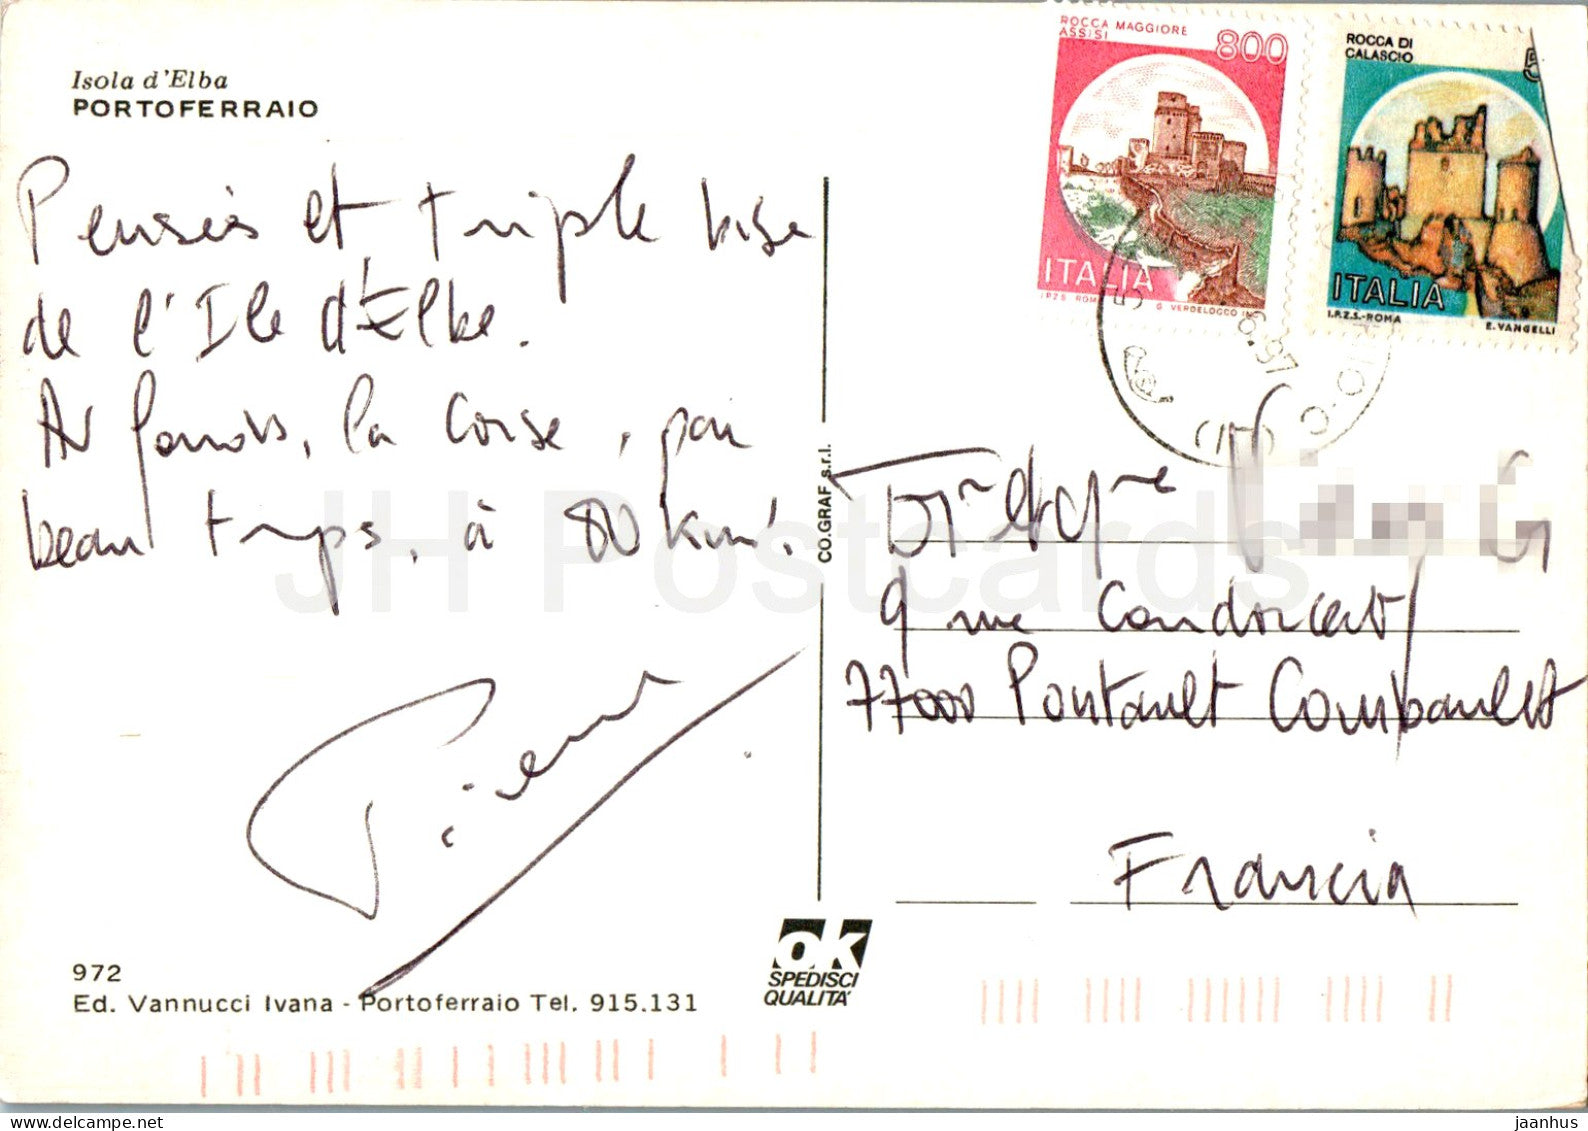 Isola d'Elba
PORTOFERRAIO
Pensées et triple bise
de l'Ile d'Elbe.
Au fond, la Corse, par
beau temps, à 80 km!
Pierre
972
Ed. Vannucci Ivana - Portoferraio Tel. 915.131
CO.GRAF s.r.l.
OK
SPEDISCI
QUALITÀ
ROCCA MAGGIORE
ASSISI
800
ITALIA
I.P.Z.S. ROMA G. VERDELOCCO INC.
ROCCA DI
CALASCIO
5
ITALIA
I.P.Z.S.-ROMA E. VANGELLI
6.97
9 rue Condorcet
77000 Pontault Combault
Francia
JH Postcards
jaanhus